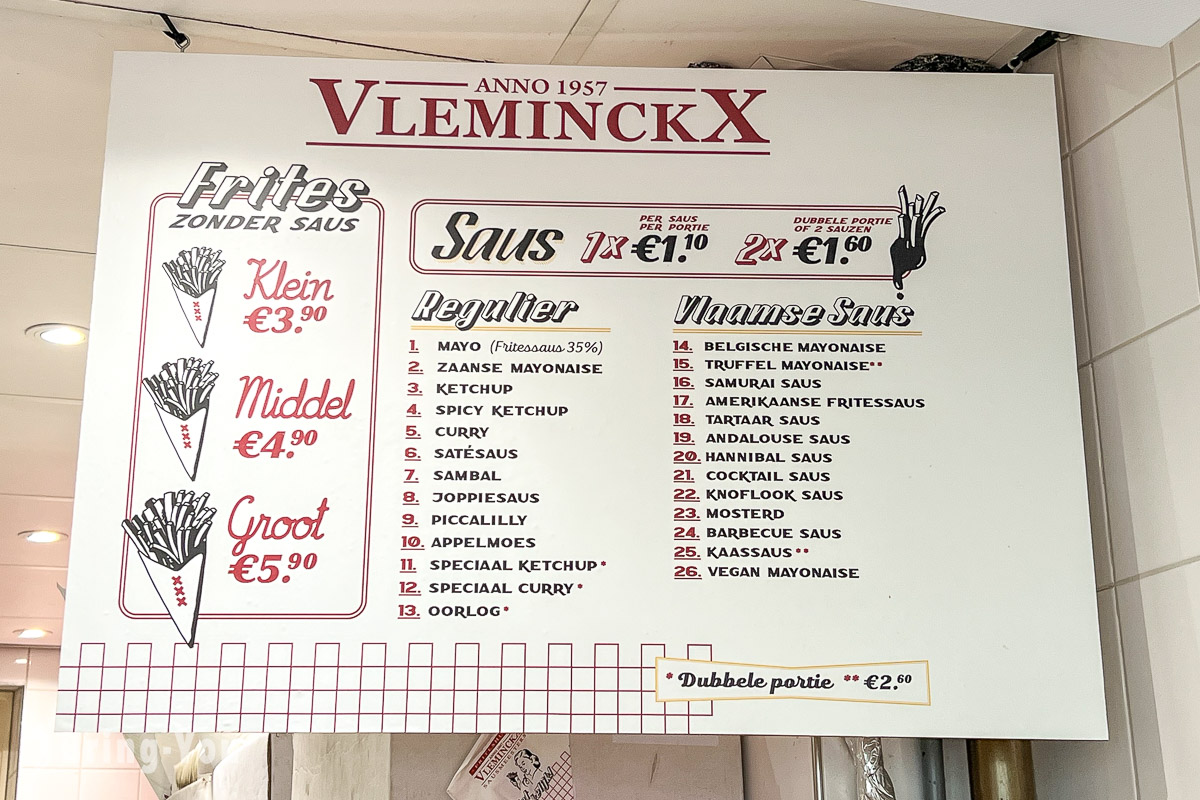 ANNO 1957
VLEMINCKX
Frites
ZONDER SAUS
Klein
€3.90
Middel
€4.90
Groot
€5.90
Saus
1x
PER SAUS
PER PORTIE
€1.10
2x
DUBBELE PORTIE
OF 2 SAUZEN
€1.60
Regulier
1. MAYO (Fritessaus 35%)
2. ZAANSE MAYONAISE
3. KETCHUP
4. SPICY KETCHUP
5. CURRY
6. SATÉSAUS
7. SAMBAL
8. JOPPIESAUS
9. PICCALILLY
10. APPELMOES
11. SPECIAAL KETCHUP*
12. SPECIAAL CURRY*
13. OORLOG*
Vlaamse Saus
14. BELGISCHE MAYONAISE
15. TRUFFEL MAYONAISE**
16. SAMURAI SAUS
17. AMERIKAANSE FRITESSAUS
18. TARTAAR SAUS
19. ANDALOUSE SAUS
20. HANNIBAL SAUS
21. COCKTAIL SAUS
22. KNOFLOOK SAUS
23. MOSTERD
24. BARBECUE SAUS
25. KAASSAUS**
26. VEGAN MAYONAISE
* Dubbele portie ** €2.60
VLEMINCKX